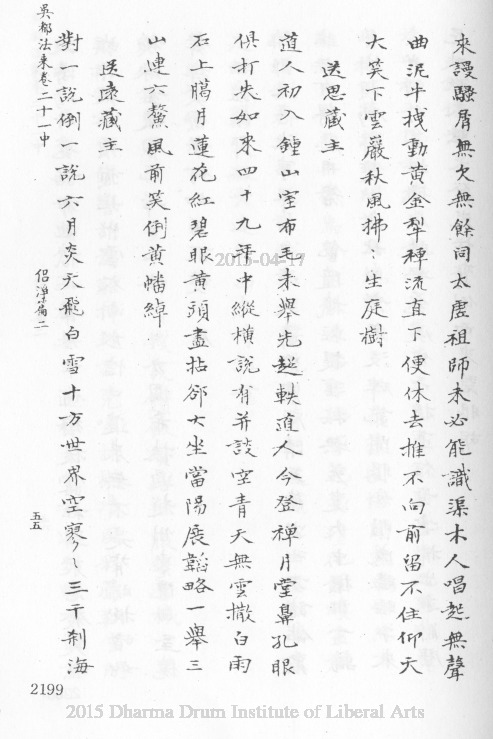 來謾騷屑無欠無餘同太虛祖師未必能識渠木人唱起無聲
曲泥牛拽動黃金犁種流直下便休去推不向前留不住仰天
大笑下雲巖秋風拂〻生庭樹
送思藏主
道人初入鍾山室布毛未舉先超軼道人今登禪月堂鼻孔眼
俱打失如來四十九年中縱橫說有并談空青天無雲撒白雨
石上臘月蓮花紅碧眼黃頭盡拈卻大坐當陽展韜略一舉三
山連六鰲風前笑倒黃幡綽
送遠藏主
對一說倒一說六月炎天飛白雪十方世界空寥〻三千剎海
吳都法乘卷二十一中
侶淨篇二
五五
2199
2015-04-17
2015 Dharma Drum Institute of Liberal Arts